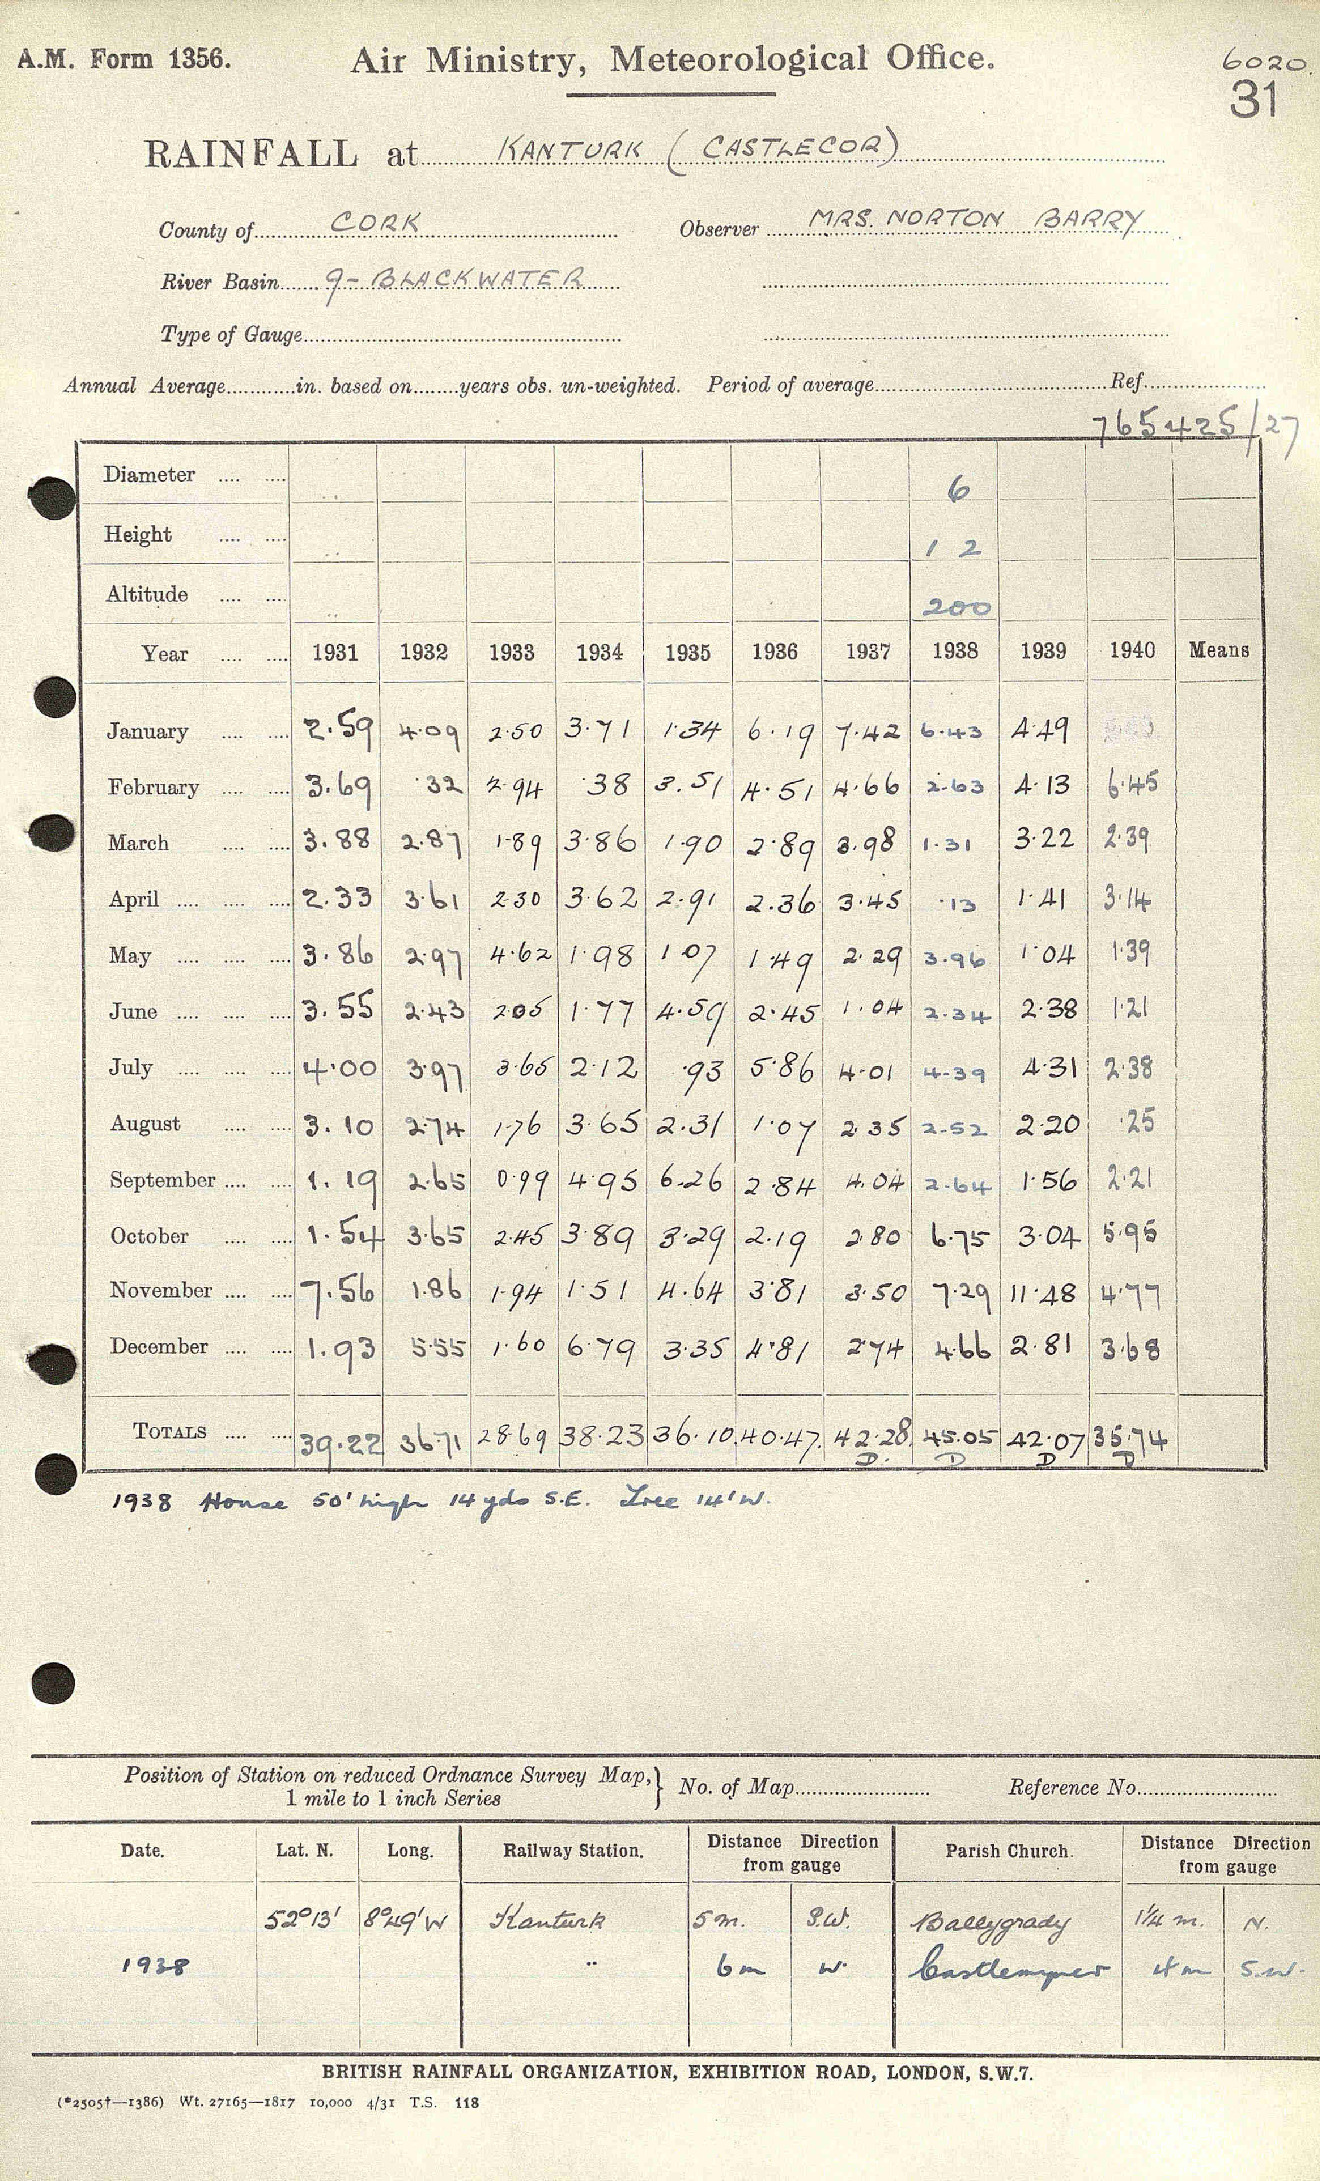 A.M. Form 1356. Air Ministry, Meteorological Office. 6020.
31
RAINFALL at KANTURK (CASTLECOR)
County of CORK Observer MRS. NORTON BARRY
River Basin 9-BLACKWATER
Type of Gauge
Annual Average in. based on years obs. un-weighted. Period of average Ref.
765425/27
Diameter 6
Height 12
Altitude 200
Year 1931 1932 1933 1934 1935 1936 1937 1938 1939 1940 Means
January 2.59 4.09 2.50 3.71 1.34 6.19 7.42 6.43 4.49
February 3.69 .32 2.94 .38 3.51 4.51 4.66 2.63 4.13 6.45
March 3.88 2.87 1.89 3.86 1.90 2.89 3.98 1.31 3.22 2.39
April 2.33 3.61 2.30 3.62 2.91 2.36 3.45 .13 1.41 3.14
May 3.86 2.97 4.62 1.98 1.07 1.49 2.29 3.96 1.04 1.39
June 3.55 2.43 2.05 1.77 4.59 2.45 1.04 2.34 2.38 1.21
July 4.00 3.97 3.65 2.12 .93 5.86 4.01 4.39 4.31 2.38
August 3.10 2.74 1.76 3.65 2.31 1.07 2.35 2.52 2.20 .25
September 1.19 2.65 0.99 4.95 6.26 2.84 4.04 2.64 1.56 2.21
October 1.54 3.65 2.45 3.89 3.29 2.19 2.80 6.75 3.04 5.95
November 7.56 1.86 1.94 1.51 4.64 3.81 3.50 7.29 11.48 4.77
December 1.93 5.55 1.60 6.79 3.35 4.81 2.74 4.66 2.81 3.68
TOTALS 39.22 36.71 28.69 38.23 36.10 40.47 42.28 45.05 42.07 35.74
D. D D D
1938 House 50' high 14 yds S.E. Tree 14' W.
Position of Station on reduced Ordnance Survey Map, } No. of Map Reference No.
1 mile to 1 inch Series
Date. Lat. N. Long. Railway Station. Distance Direction from gauge Parish Church. Distance Direction from gauge
52°13' 8°49'W Kanturk 5 m. S.W. Ballygrady 1¼ m. N.
1938 " 6 m W. 4 m S.W.
BRITISH RAINFALL ORGANIZATION, EXHIBITION ROAD, LONDON, S.W.7.
(*2505†—1386) Wt. 27165—1817 10,000 4/31 T.S. 118